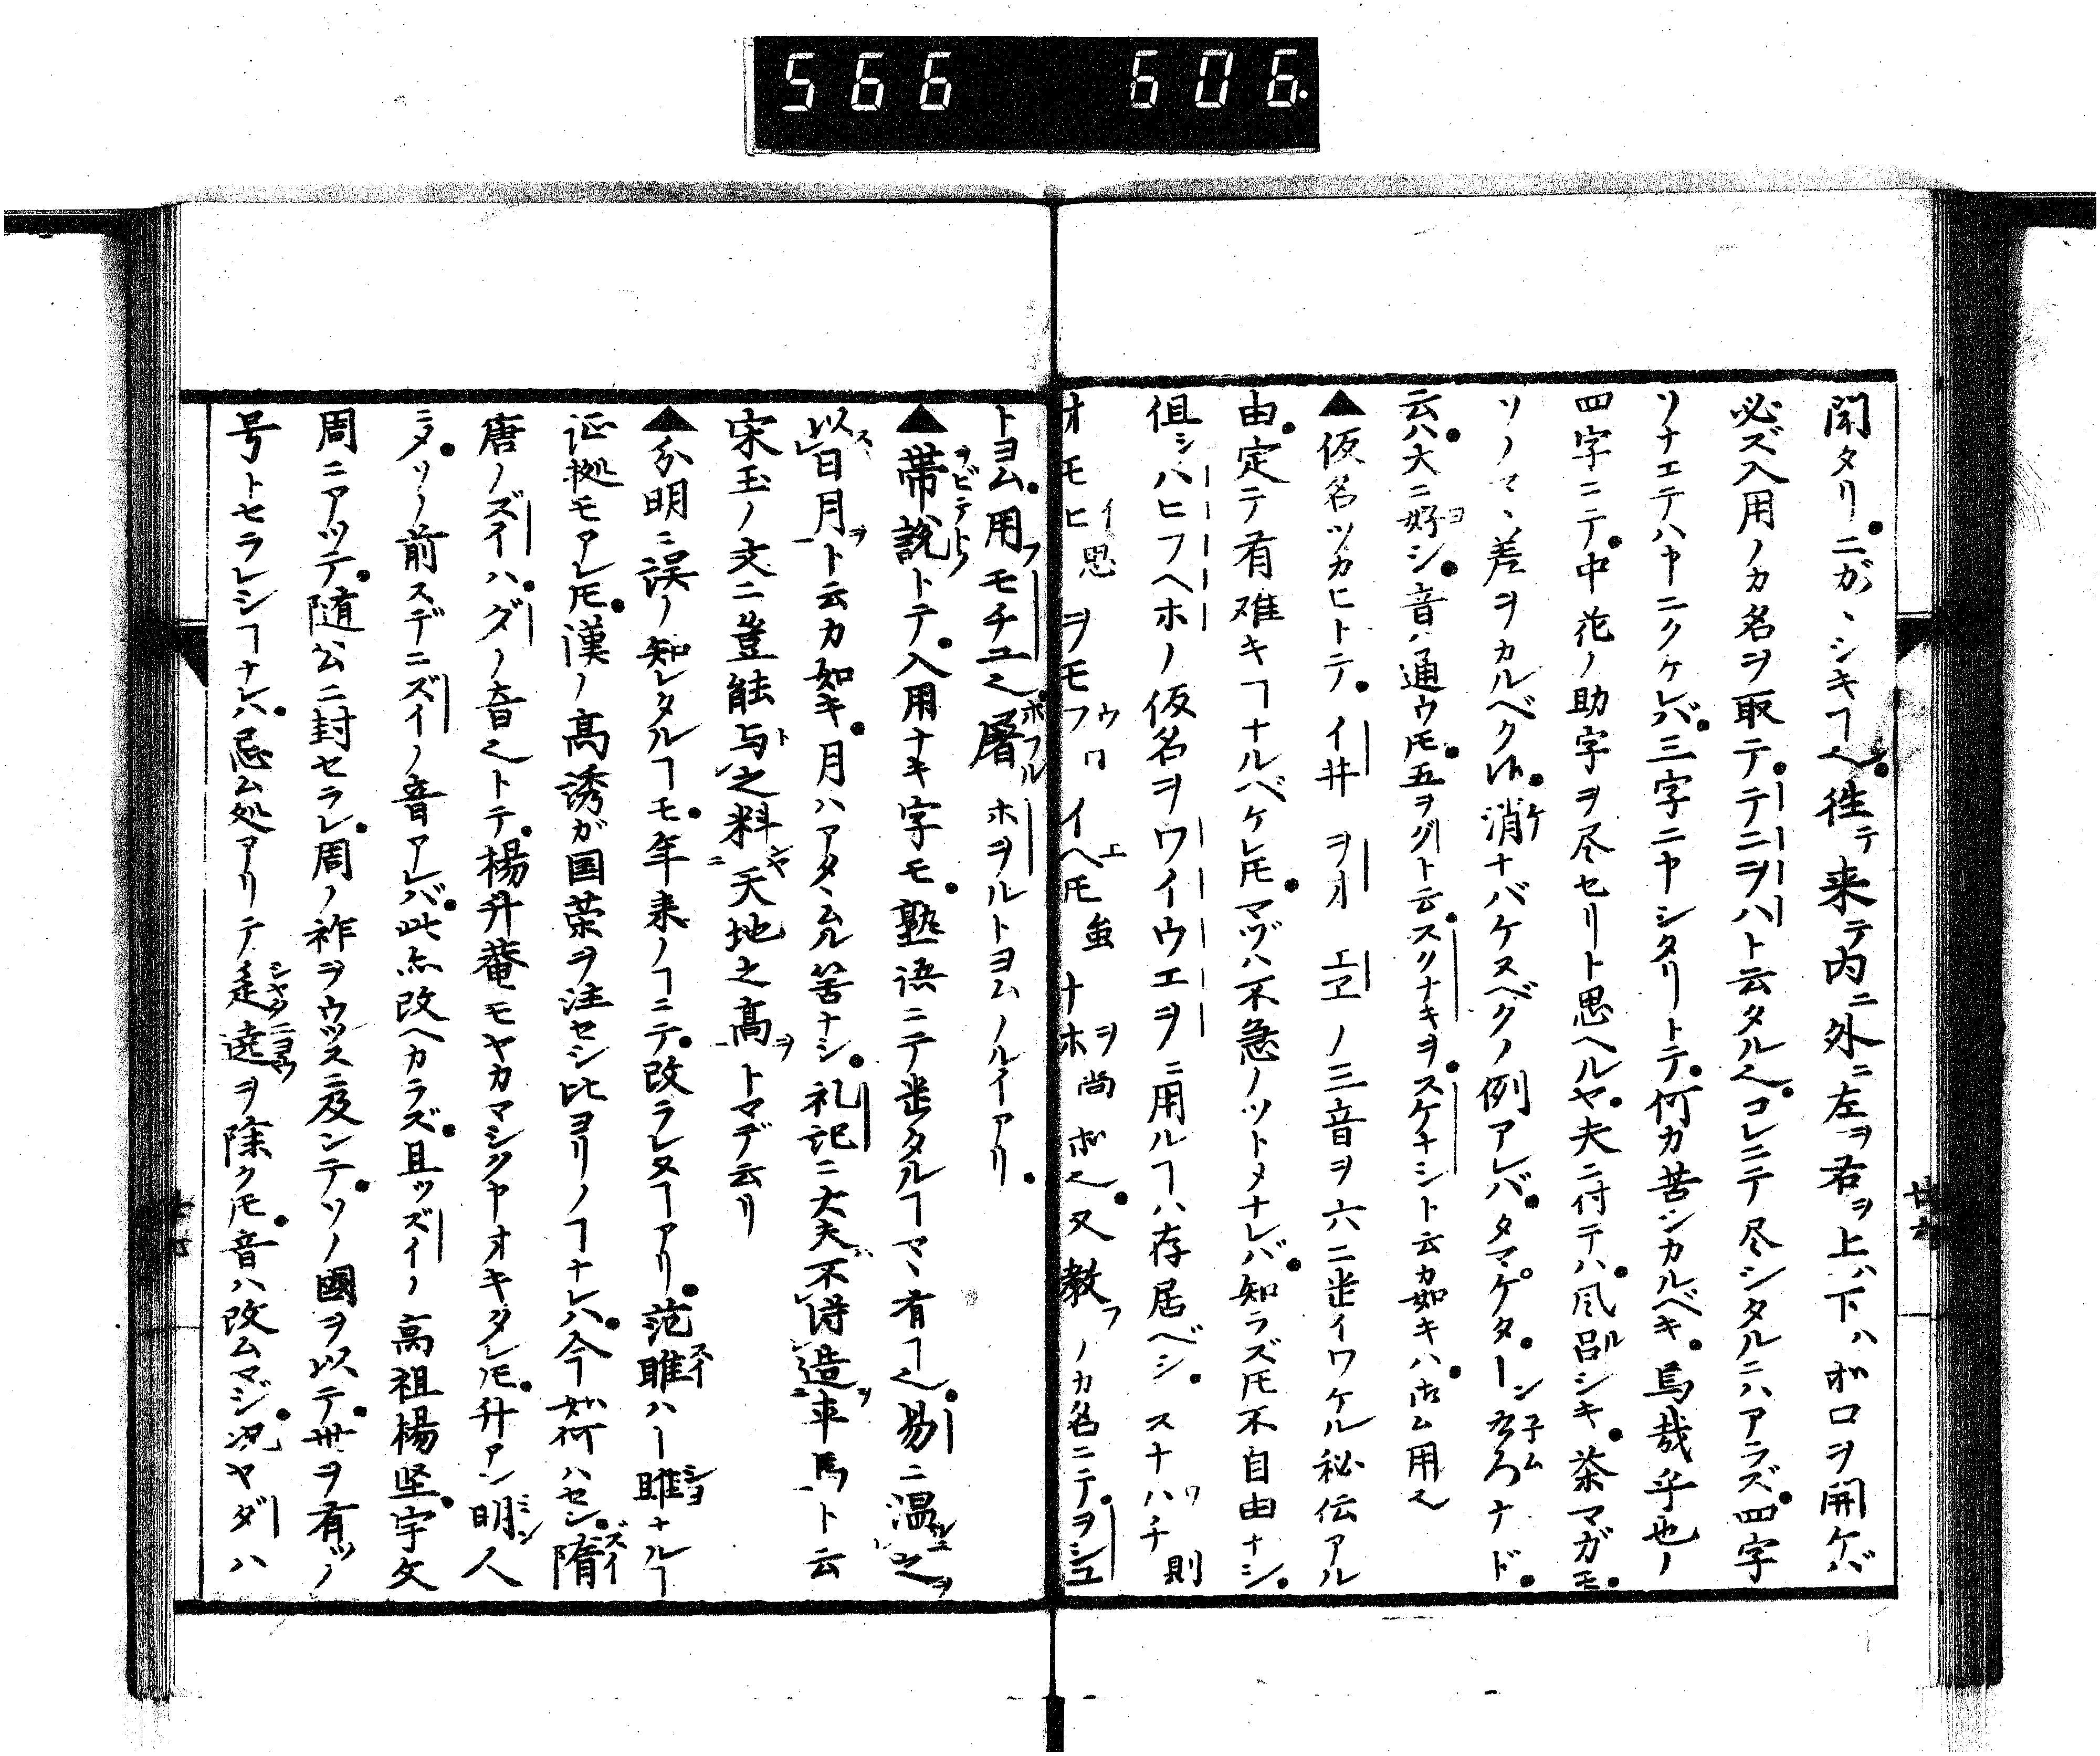 566 606.
開タリ。ニガヽシキヿ也。往テ来テ内ニ外ニ左ヲ右ヲ上ハ下ハオロヲ開ケバ
必ズ入用ノカ名ヲ取テ。テニヲハト云タル也。コレニテ尽シタルニハアラズ。四字
ソナエテハヤニクケレバ。三字ニヤシタリトテ。何カ苦シカルベキ。焉哉乎也ノ
四字ニテ。中花ノ助字ヲ尽セリト思ヘルヤ。夫ニ付テハ。風呂シキ。茶マガモ。
ソノマヽ差ヲカルベク候。消ケナバケヌベクノ例アレバ。タマケタ。
云ハ。大ニ好ヨシ。音ハ通ウ𪜈。五ヲグト云。スクナキヲ。スケナシト云カ如キハ。古ム用也
▲仮名ツカヒトテ。イ井 ヲオ エヱノ三音ヲ六ニ半イワケル秘伝アル
由。定テ有难キヿナルベケレ𪜈。マヅハ不急ノツトメナレバ。知ラズ𪜈不自由ナシ。
但シハヒフヘホノ仮名ヲワイウエヲニ用ルヿハ存居ベシ。スナハワチ則
オモヒイ思 ヲモフウ イヘエ𪜈虽 ナホヲ尚 也。又教フノカ名ニテ。ヲシユ
トヨム。用フモチユ也。屠ホフルホヲルトヨムノルイアリ。
▲帯説ヲビテトクトテ。入用ナキ字モ。塾語ニテ半タルヿマヽ有ヿ也。易ニ温之
以日月ト云カ如キ。月ハアタヽムル筈ナシ。礼記ニ大夫不得造車馬ト云
宋玉ノ文ニ豈能与之料天地之高トマデ云リ
▲分明ニ誤ノ知レタルヿモ。年来ノヿニテ。改ラレヌヿアリ。范雎スイハ―雎シヨナルヿ
証拠モアレ𪜈。漢ノ高誘ガ国策ヲ注セシ比ヨリノヿナレハ。今如何ハセン。隋ズイ
唐ノズイハ。ダノ音也トテ。楊升菴モヤカマシクヤオキタレ𪜈。升アン明ミン人
ミタリ。ノ前スデニズイノ音アレバ。此点改ヘカラズ。且ツズイノ高祖楊坚。宇文
周ニアツテ。随公ニ封セラレ。周ノ祚ヲウツスニ及ンテ。ソノ國ヲ以テ。世ヲ有ツノ
号トセラレシヿナレハ。忌ム処アリテ辵シヤク遶ニヨウヲ除ク𪜈。音ハ改ムマジ。況ヤダハ
廿六